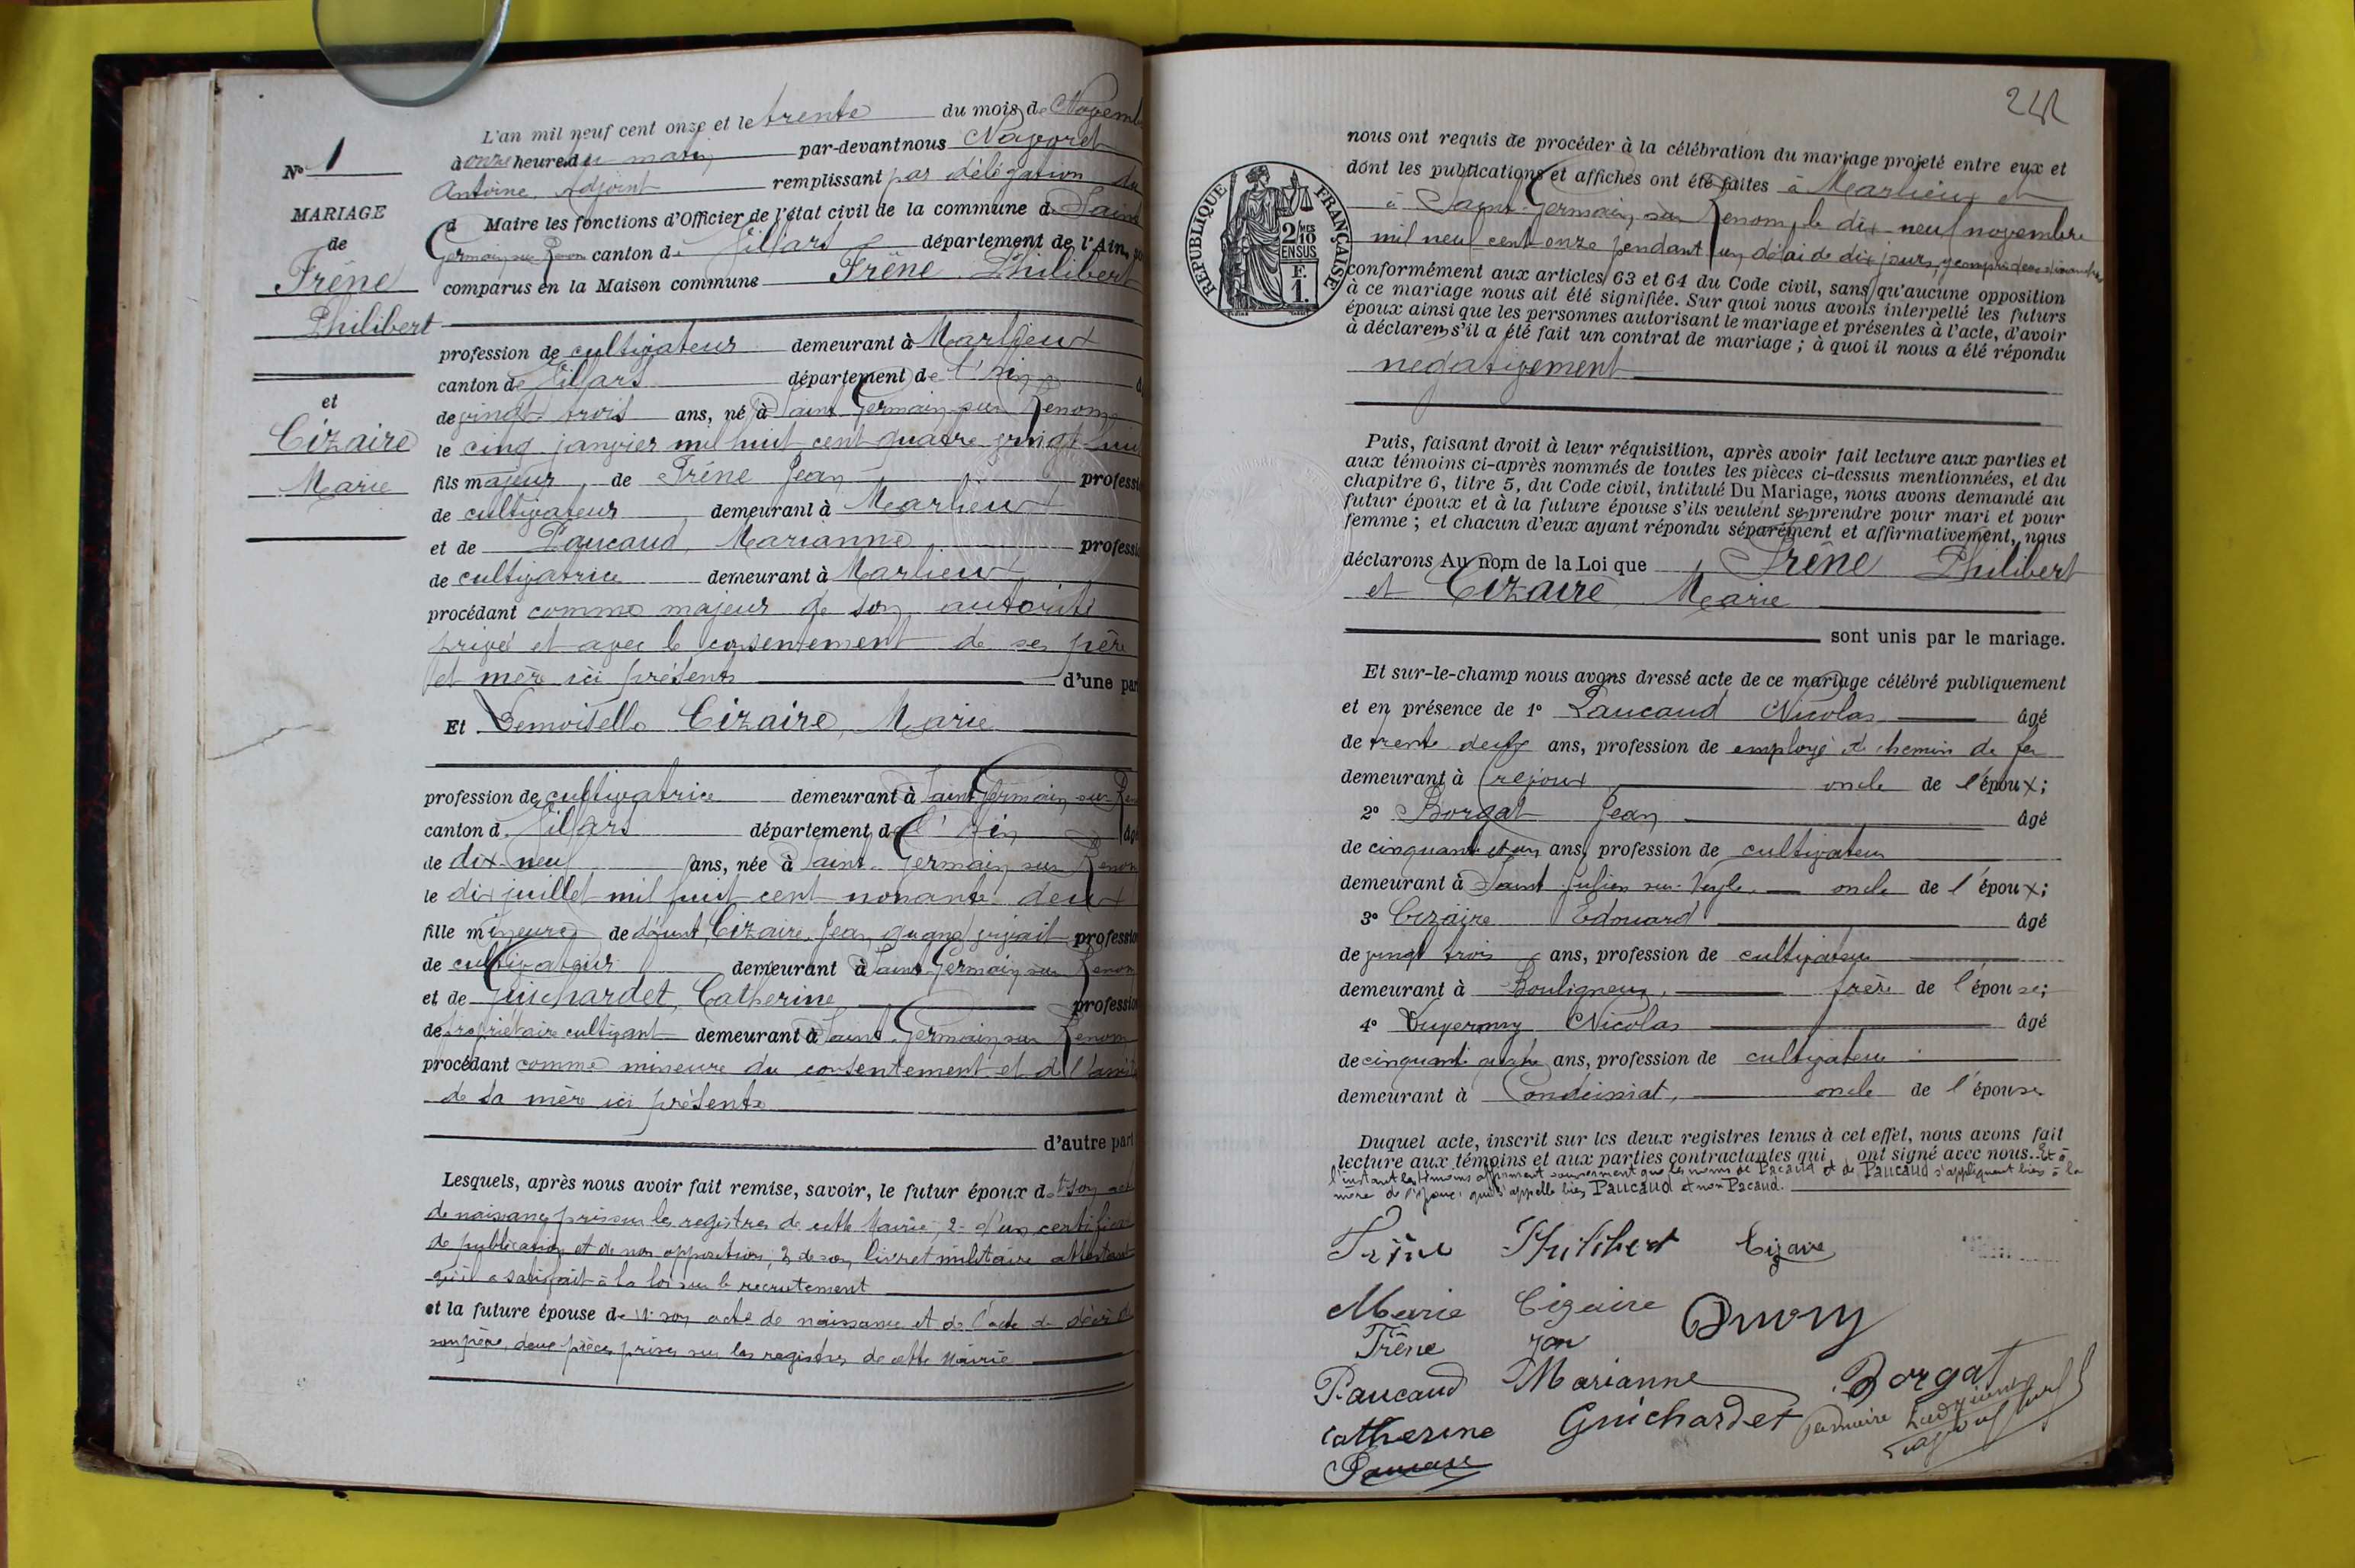 L'an mil neuf cent onze et le trente du mois de Novemb
à onze heure du matin par-devant nous Nayoret
Antoine, Adjoint remplissant par délégation du
d Maire les fonctions d'Officier de l'état civil de la commune de Saint
Germain sur Renon canton de Villars département de l'Ain,
comparus en la Maison commune Frêne Philibert
profession de cultivateur demeurant à Marlieux
canton de Villars département de l'Ain
de vingt trois ans, né à Saint Germain sur Renon
le cinq janvier mil huit cent quatre vingt hui
fils majeur, de Frêne Jean professi
de cultivateur demeurant à Marlieux
et de Paucaud, Marianne, professi
de cultivatrice demeurant à Marlieux
procédant comme majeur de son autorité
privé et avec le consentement de ses père
et mère ici présents d'une par
Et Demoiselle Cizaire, Marie
profession de cultivatrice demeurant à Saint Germain sur Ren
canton d. Villars département de l'Ain âgé
de dix-neuf ans, née à Saint-Germain sur Renon
le dix juillet mil huit cent nonante deux
fille mineure de défunt Cizaire Jean quand vivait professio
de cultivateur demeurant à Saint Germain sur Renon
et de Guichardet, Catherine professio
de propriétaire cultivant demeurant à Saint-Germain sur Renon
procédant comme mineure du consentement et de l'
de sa mère ici présente
d'autre part
Lesquels, après nous avoir fait remise, savoir, le futur époux de 1° son act
de naissance pris sur les registres de cette Mairie; 2° d'un certifica
de publication et de non opposition; 3 de son livret militaire attestant
qu'il a satisfait à la loi sur le recrutement
et la future épouse de 1° son acte de naissance et de l'acte de décès de
son père, deux pièces prises sur les registres de cette Mairie
N° 1
MARIAGE
de
Frêne
Philibert
et
Cizaire
Marie
nous ont requis de procéder à la célébration du mariage projeté entre eux et
dont les publications et affiches ont été faites à Marlieux et
à Saint-Germain sur Renon, le dix-neuf novembre
mil neuf cent onze pendant un délai de dix jours, y compris deux dimanches
conformément aux articles 63 et 64 du Code civil, sans qu'aucune opposition
à ce mariage nous ait été signifiée. Sur quoi nous avons interpellé les futurs
époux ainsi que les personnes autorisant le mariage et présentes à l'acte, d'avoir
à déclarer s'il a été fait un contrat de mariage; à quoi il nous a été répondu
negativement
RÉPUBLIQUE FRANÇAISE
2 MES
10
EN SUS
F.
1.
Puis, faisant droit à leur réquisition, après avoir fait lecture aux parties et
aux témoins ci-après nommés de toutes les pièces ci-dessus mentionnées, et du
chapitre 6, titre 5, du Code civil, intitulé Du Mariage, nous avons demandé au
futur époux et à la future épouse s'ils veulent se prendre pour mari et pour
femme; et chacun d'eux ayant répondu séparément et affirmativement, nous
déclarons Au nom de la Loi que Frêne Philibert
et Cizaire Marie
sont unis par le mariage.
Et sur-le-champ nous avons dressé acte de ce mariage célébré publiquement
et en présence de 1° Paucaud Nicolas âgé
de trente deux ans, profession de employé de chemin de fer
demeurant à oncle de l'époux;
2° Borgat Jean âgé
de cinquante et un ans, profession de cultivateur
demeurant à Saint Julien sur Veyle, oncle de l'époux;
3° Cizaire Edouard âgé
de vingt trois ans, profession de cultivateur
demeurant à Bouligneux, frère de l'épouse;
4° Nicolas âgé
de cinquante quatre ans, profession de cultivateur
demeurant à Condeissiat, oncle de l'épouse
Duquel acte, inscrit sur les deux registres tenus à cet effet, nous avons fait
lecture aux témoins et aux parties contractantes qui ont signé avec nous. Et à
l'instant les témoins affirment que les noms de Pacaud et de Paucaud s'appliquent bien à la
mère de l'époux, qui s'appelle bien Paucaud et non Pacaud.
Frêne Philibert Cizaire
Marie Cizaire
Frêne Jean
Paucaud Marianne Borgat
Catherine Guichardet